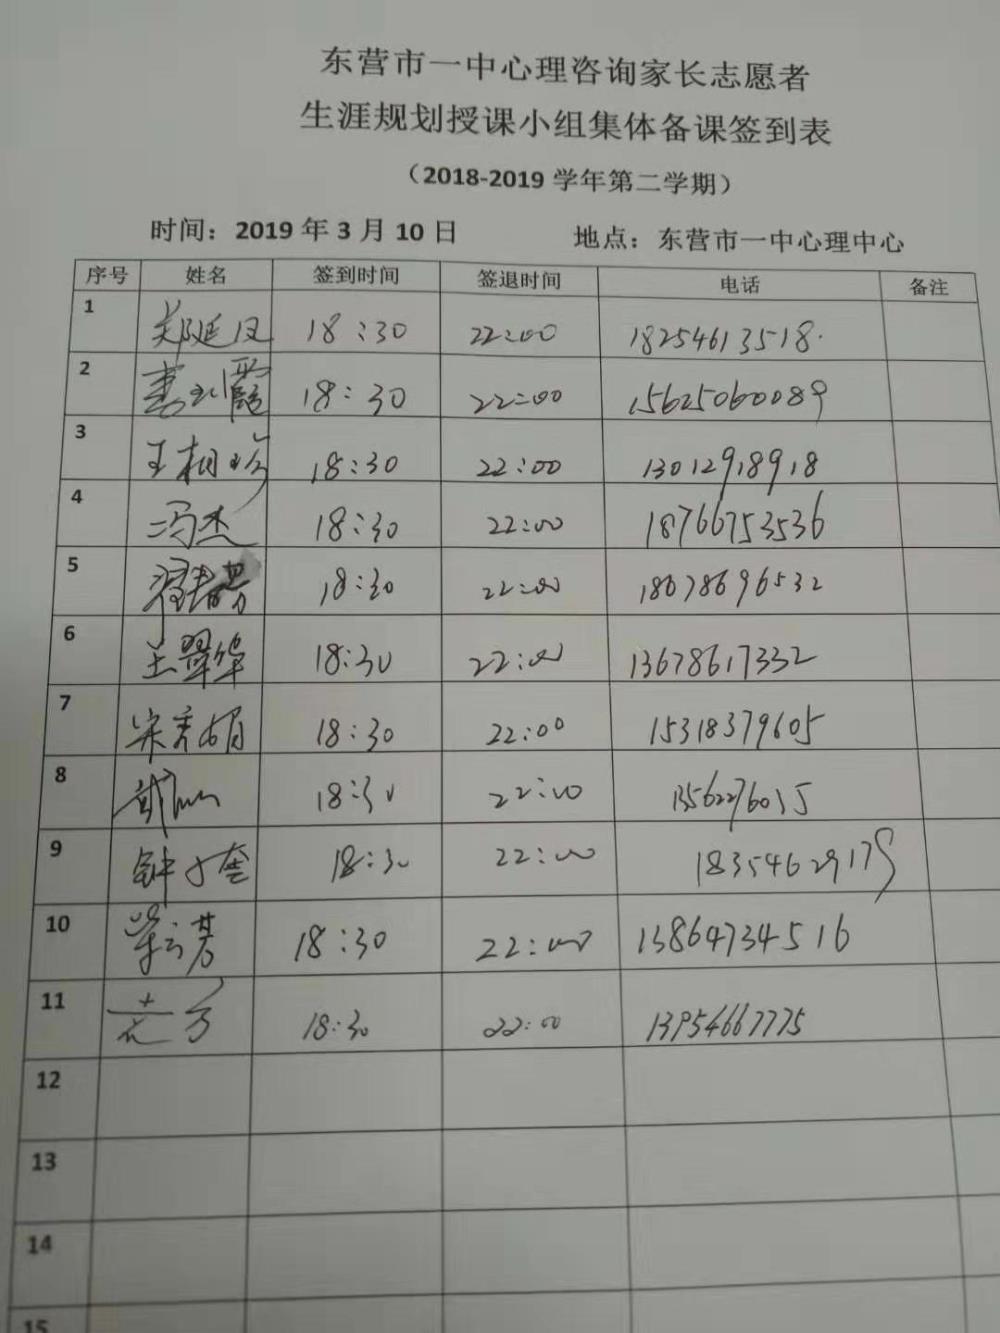 东营市一中心理咨询家长志愿者
生涯规划授课小组集体备课签到表
（2018-2019 学年第二学期）
时间：2019 年 3 月 10 日 地点：东营市一中心理中心
序号 姓名 签到时间 签退时间 电话 备注
1 郑延风 18:30 22:00 18254613518.
2 18:30 22:00 15625060089
3 王相珍 18:30 22:00 13012918918
4 冯杰 18:30 22:00 18766753536
5 18:30 22:00 18678696532
6 王翠华 18:30 22:00 13678617332
7 宋秀娟 18:30 22:00 15318379605
8 18:30 22:00 13562276035
9 钟 18:30 22:00 18354629179
10 18:30 22:00 13864734516
11 18:30 22:00 13954667775
12
13
14
15